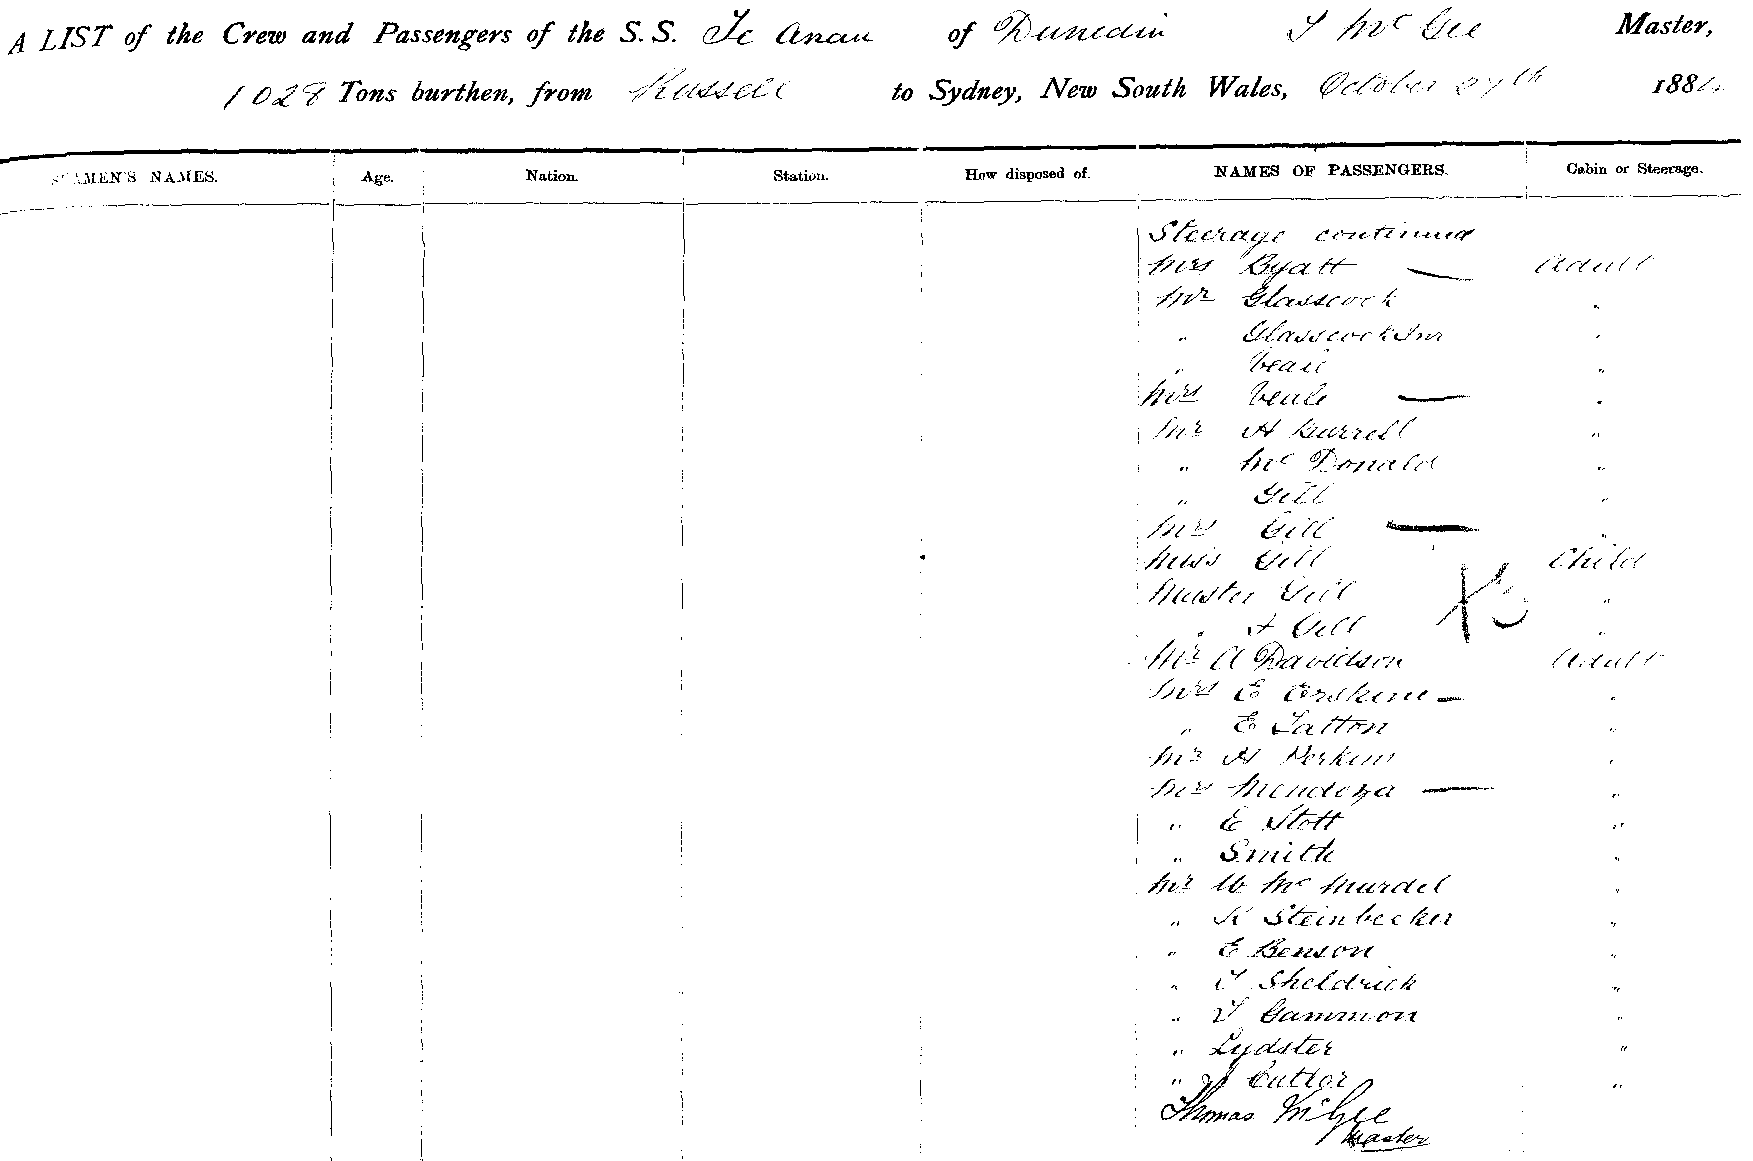 A LIST of the Crew and Passengers of the S.S. Te Anau of Dunedin T McGee Master,
1028 Tons burthen, from Russell to Sydney, New South Wales, October 27th 1884
SEAMEN'S NAMES. Age. Nation. Station. How disposed of. NAMES OF PASSENGERS. Cabin or Steerage.
Steerage continued
Mrs Byatt — Adult
Mr Glasscock "
" Glasscock Jnr "
" Veale "
Mrs Veale — "
Mr H Burrell "
" McDonald "
" Gill "
Mrs Gill — "
Miss Gill Child
Master Gill "
" Gill "
Mr A Davidson Adult
Mrs E Erskine — "
" E Tatton "
Mr H Perkins "
Mrs Mendoza — "
" E Stott "
" Smith "
Mr W McMurdel "
" K Steinbecker "
" E Benson "
" T Sheldrick "
" T Gammon "
" Lydster "
" Cutler "
Thomas McGee
Master